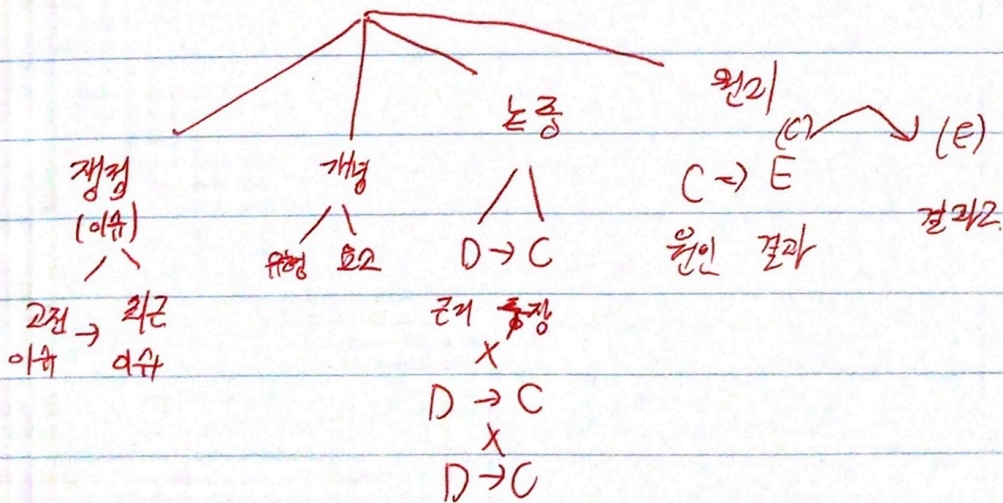 쟁점
(이슈)
고전 → 최근
이슈 이슈
개념
유형 요소
논증
D → C
근거 주장
X
D → C
X
D → C
원리
(C) (E)
C => E
원인 결과
결과2